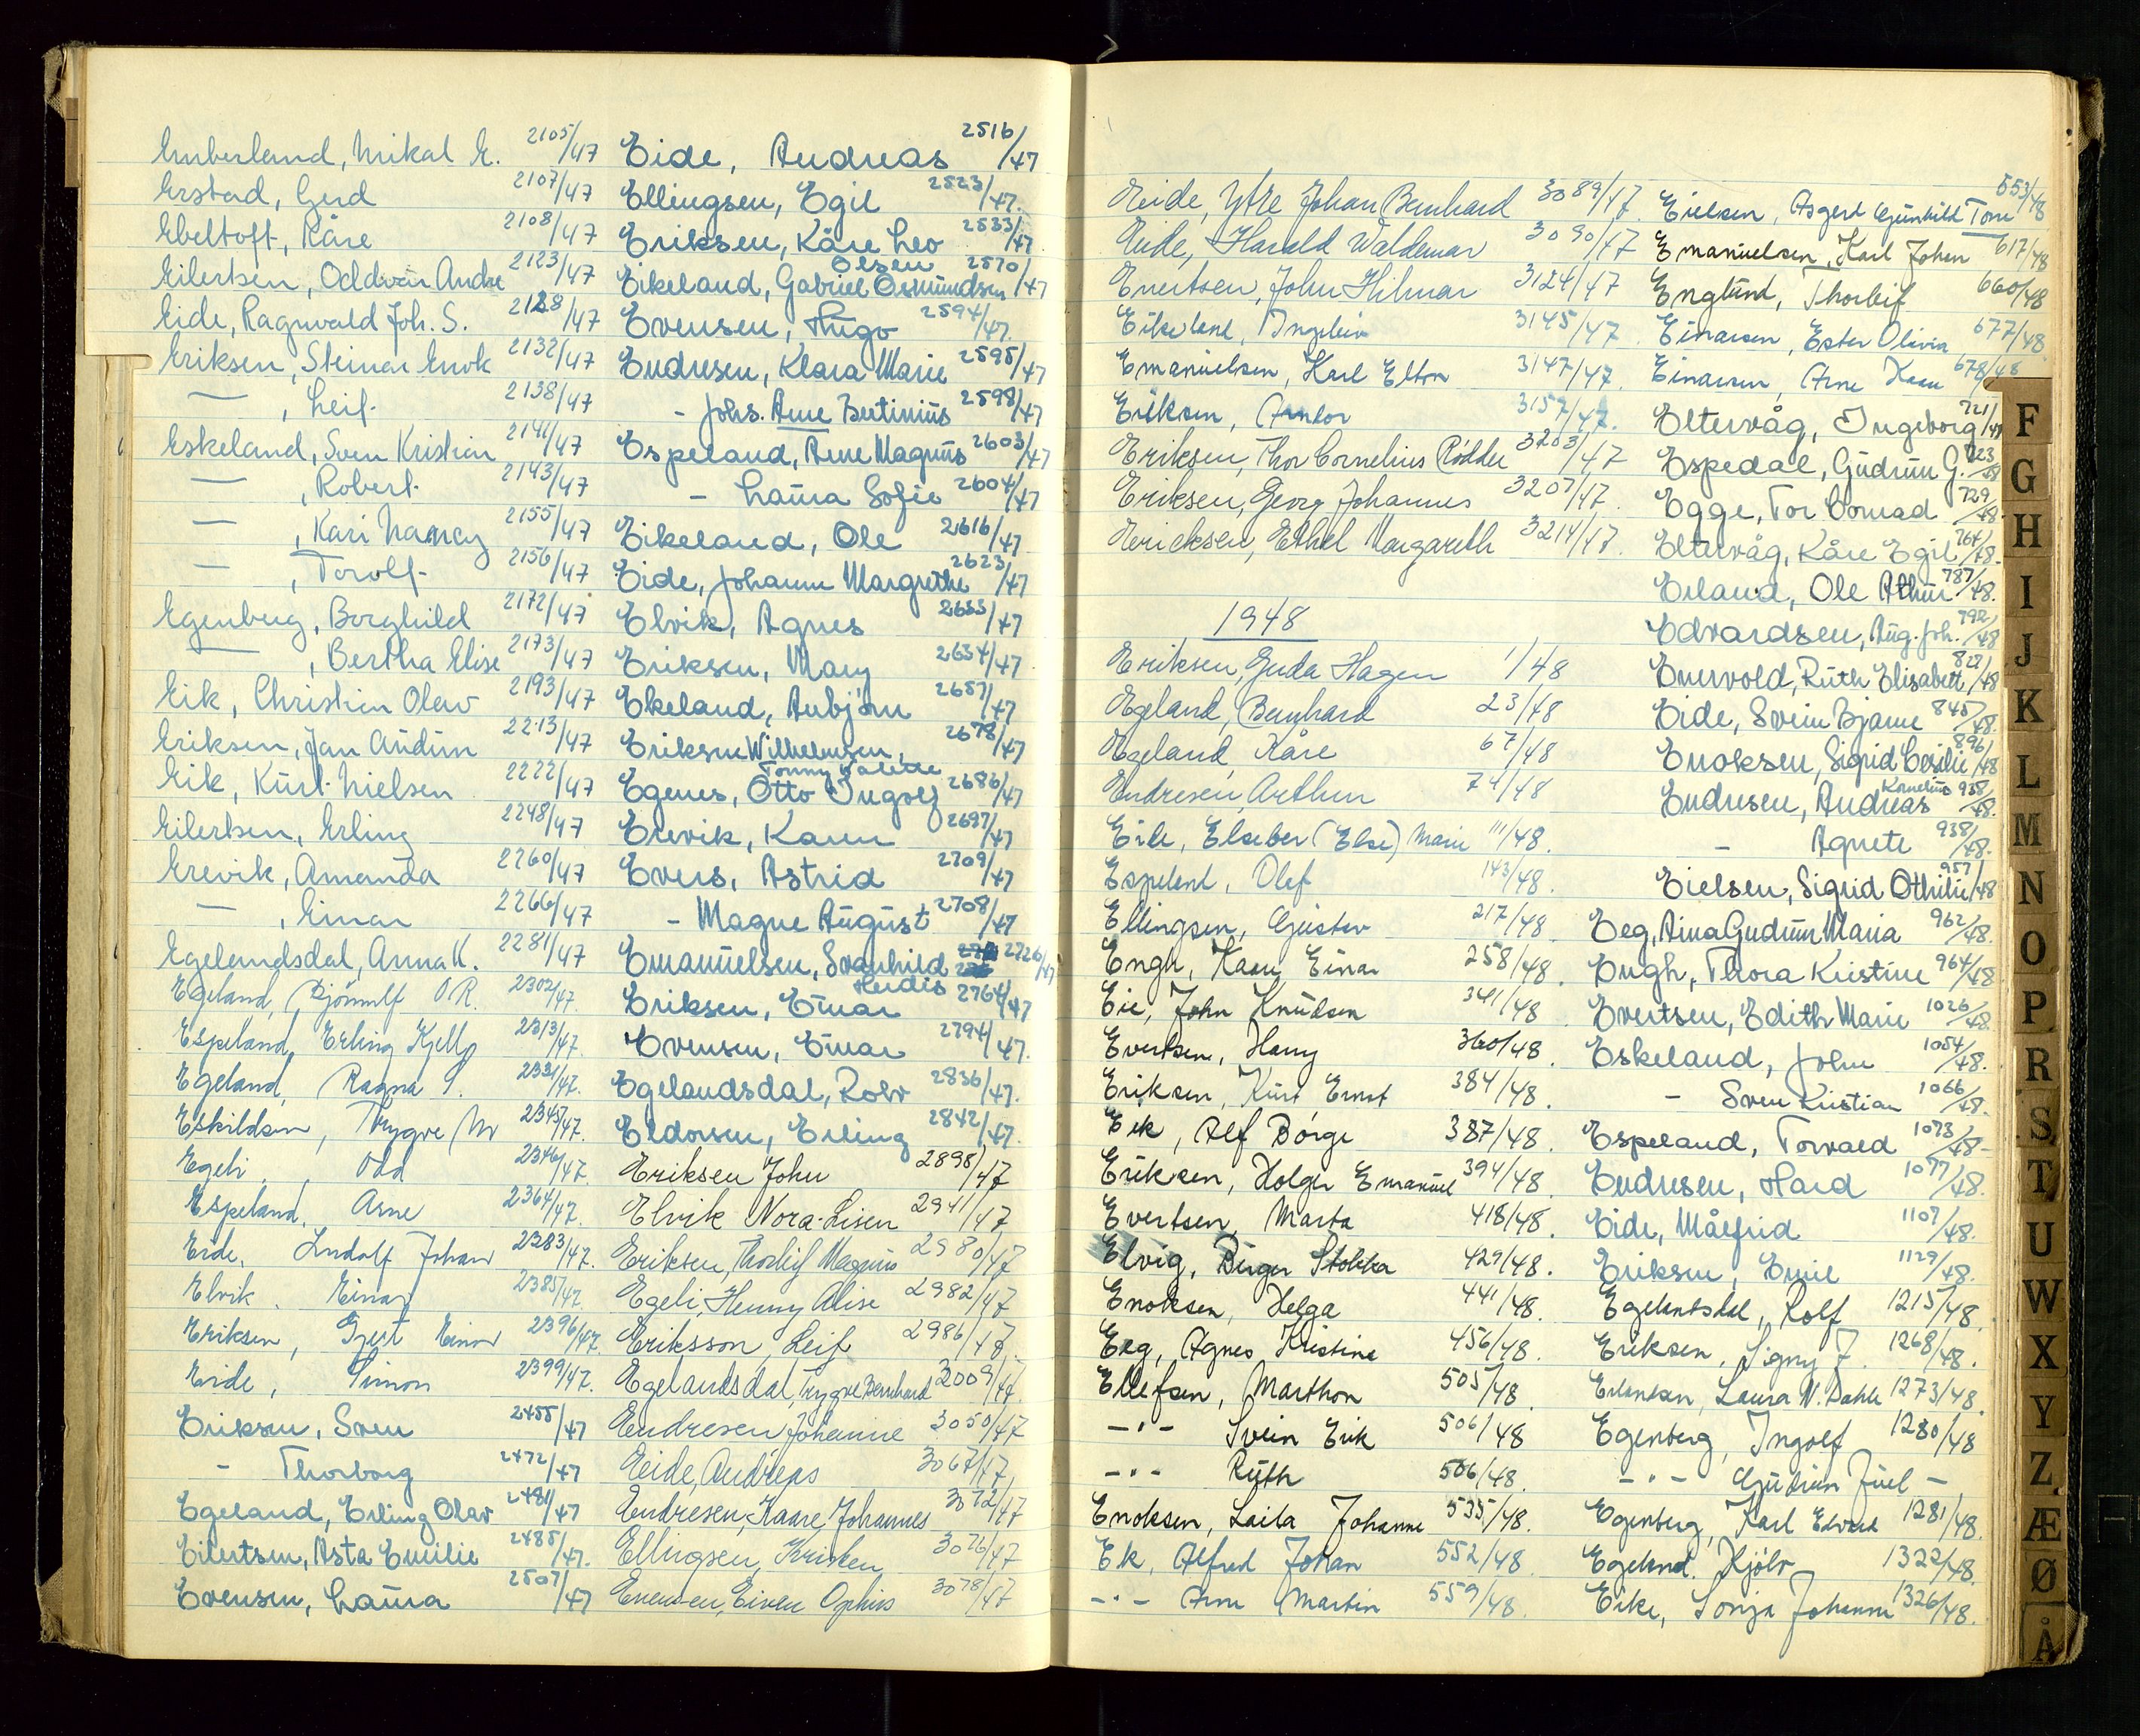 Emberland, Mikal E. 2105/47
Erstad, Gerd 2107/47
Ebeltoft, Kåre 2108/47
Eilertsen, Oddvar Andre 2123/47
Eide, Ragnvald Joh. S. 2128/47
Eriksen, Steinar Enok 2132/47
— , Leif 2138/47
Eskeland, Sven Kristian 2141/47
— , Robert 2143/47
— , Kari Nancy 2155/47
— , Torolf 2156/47
Egenberg, Borghild 2172/47
— , Bertha Elise 2173/47
Eik, Christian Olav 2193/47
Eriksen, Jan Audun 2213/47
Eik, Kurt Nielsen 2222/47
Eilertsen, Erling 2248/47
Erevik, Amanda 2260/47
— , Einar 2266/47
Egelandsdal, Anna K. 2281/47
Egeland, Bjönnulf O.R. 2302/47.
Espeland, Erling Kjell 2313/47.
Egeland, Ragna S. 2331/47.
Eskildsen, Trygve M 2345/47.
Egeli, Odd 2346/47.
Espeland, Arne 2364/47.
Eide, Ludolf Johan 2383/47.
Elvik, Einar 2385/47.
Eriksen, Gjert Einar 2396/47.
Eide, Simon 2399/47.
Eriksen, Sven 2455/47
- Thorborg 2472/47
Egeland, Erling Olav 2481/47
Eilertsen, Asta Emilie 2485/47.
Evensen, Laura 2507/47
Eide, Andreas 2516/47
Ellingsen, Egil 2523/47.
Eriksen, Kåre Leo 2533/47
Olsen
Eikeland, Gabriel Osmundsen 2570/47
Evensen, Hugo 2594/47.
Endresen, Klara Marie 2595/47
- Johs. Arne Bertinius 2598/47
Espeland, Arne Magnus 2603/47
- Laura Sofie 2604/47
Eikeland, Ole 2616/47
Eide, Johanne Margrethe 2623/47
Elvik, Agnes 2633/47
Eriksen, Mary 2634/47
Ekeland, Aubjörn 2657/47
Eriksen Wilhelmsen, 2678/47
Tonny Valette
Egenes, Otto Ingolf 2686/47
Erevik, Karen 2697/47
Evers, Astrid 2709/47
- Magne August 2708/47
Emanuelsen, Svanhild 2726/47
Herdis
Eriksen, Einar 2764/47
Evensen, Einar 2794/47.
Egelandsdal, Rolv 2836/47.
Eldorsen, Erling 2842/47.
Eriksen John 2898/47
Elvik Nora-Lisen 2941/47
Eriksen, Thorleif Magnus 2980/47
Egeli, Henny Alise 2982/47
Eriksson, Leif 2986/47.
Egelandsdal, Trygve Bernhard 3009/47.
Endresen Johanne 3050/47
Eeide, Andreas 3067/47,
Endresen, Kaare Johannes 3072/47
Ellingsen, Kristen 3076/47
Evensen, Eiven Ophus 3078/47
Eeide, Ytre Johan Bernhard 3089/47.
Eide, Harald Waldemar 3090/47
Enertsen, John Hilmar 3124/47
Eikeland, Ingeleiv 3145/47
Emanuelsen, Karl Elton 3147/47.
Eriksen, Anntor 3157/47.
Eriksen, Thor Cornelius Rödder 3203/47
Eriksen, Georg Johannes 3207/47.
Ericksen, Ethel Margareth 3214/47.
1948
Eriksen, Gerda Hagen 1/48
Egeland, Bernhard 23/48
Egeland, Kåre 67/48
Endresen, Arthur 74/48
Eide, Elseber (Else) Marie 111/48.
Espeland, Olef 143/48.
Ellingsen, Gustav 217/48.
Engh, Kaare Einar 258/48.
Eie, John Knudsen 341/48.
Evertsen, Harry 360/48.
Eriksen, Kurt Ernst 384/48.
Eek, Alf Börge 387/48.
Eriksen, Holger Emanuel 394/48.
Evertsen, Marta 418/48.
Elvig, Birger Stokka 429/48.
Enoksen, Helga 441/48.
Eeg, Agnes Kristine 456/48.
Ellefsen, Marthon 505/48.
—"— Svein Erik 506/48
—"— Ruth 506/48.
Enoksen, Laila Johanne 535/48.
Ek, Alfred Johan 552/48
—"— Arne Martin 559/48.
Eielsen, Asgerd Gunhild Tone 553/48
Emanuelsen, Karl Johan 617/48
Englund, Thorleif 660/48
Einarsen, Ester Olivia 677/48.
Einarsen, Arne Kaare 678/48
Eltervåg, Ingeborg 721/48
Espedal, Gudrun G. 723/48
Egge, Tor Conrad 729/48.
Eltervåg, Kåre Egil 764/48.
Erland, Ole Athur 787/48.
Edvardsen, Aug. Joh. 792/48
Enervold, Ruth Elisabeth 827/48
Eide, Svein Bjarne 845/48.
Enoksen, Sigrid Cesilie 896/48
Kornelius
Endresen, Andreas 938/48.
- Agnete 938/48.
Eielsen, Sigrid Othilie 957/48
Eeg, Aina Gudrun Maria 962/48.
Engh, Thora Kristine 964/48
Evertsen, Edith Marie 1026/48.
Eskeland, John 1054/48.
- Sven Kristian 1066/48.
Espeland, Torvald 1073/48-
Endresen, Hard 1077/48.
Eide, Målfrid 1107/48.
Eriksen, Emil 1129/48.
Egelandsdal, Rolf 1215/48.
Eriksen, Signy J. 1268/48.
Erlandsen, Laura N. Dahle 1273/48.
Egenberg, Ingolf 1280/48
—"— Gudrun Juel —
Egenberg, Karl Edvard 1281/48.
Egeland, Kjölv 1322/48.
Eike, Sonja Johanne 1326/48.
F
G
H
I
J
K
L
M
N
O
P
R
S
T
U
W
X
Y
Z
Æ
Ø
Å